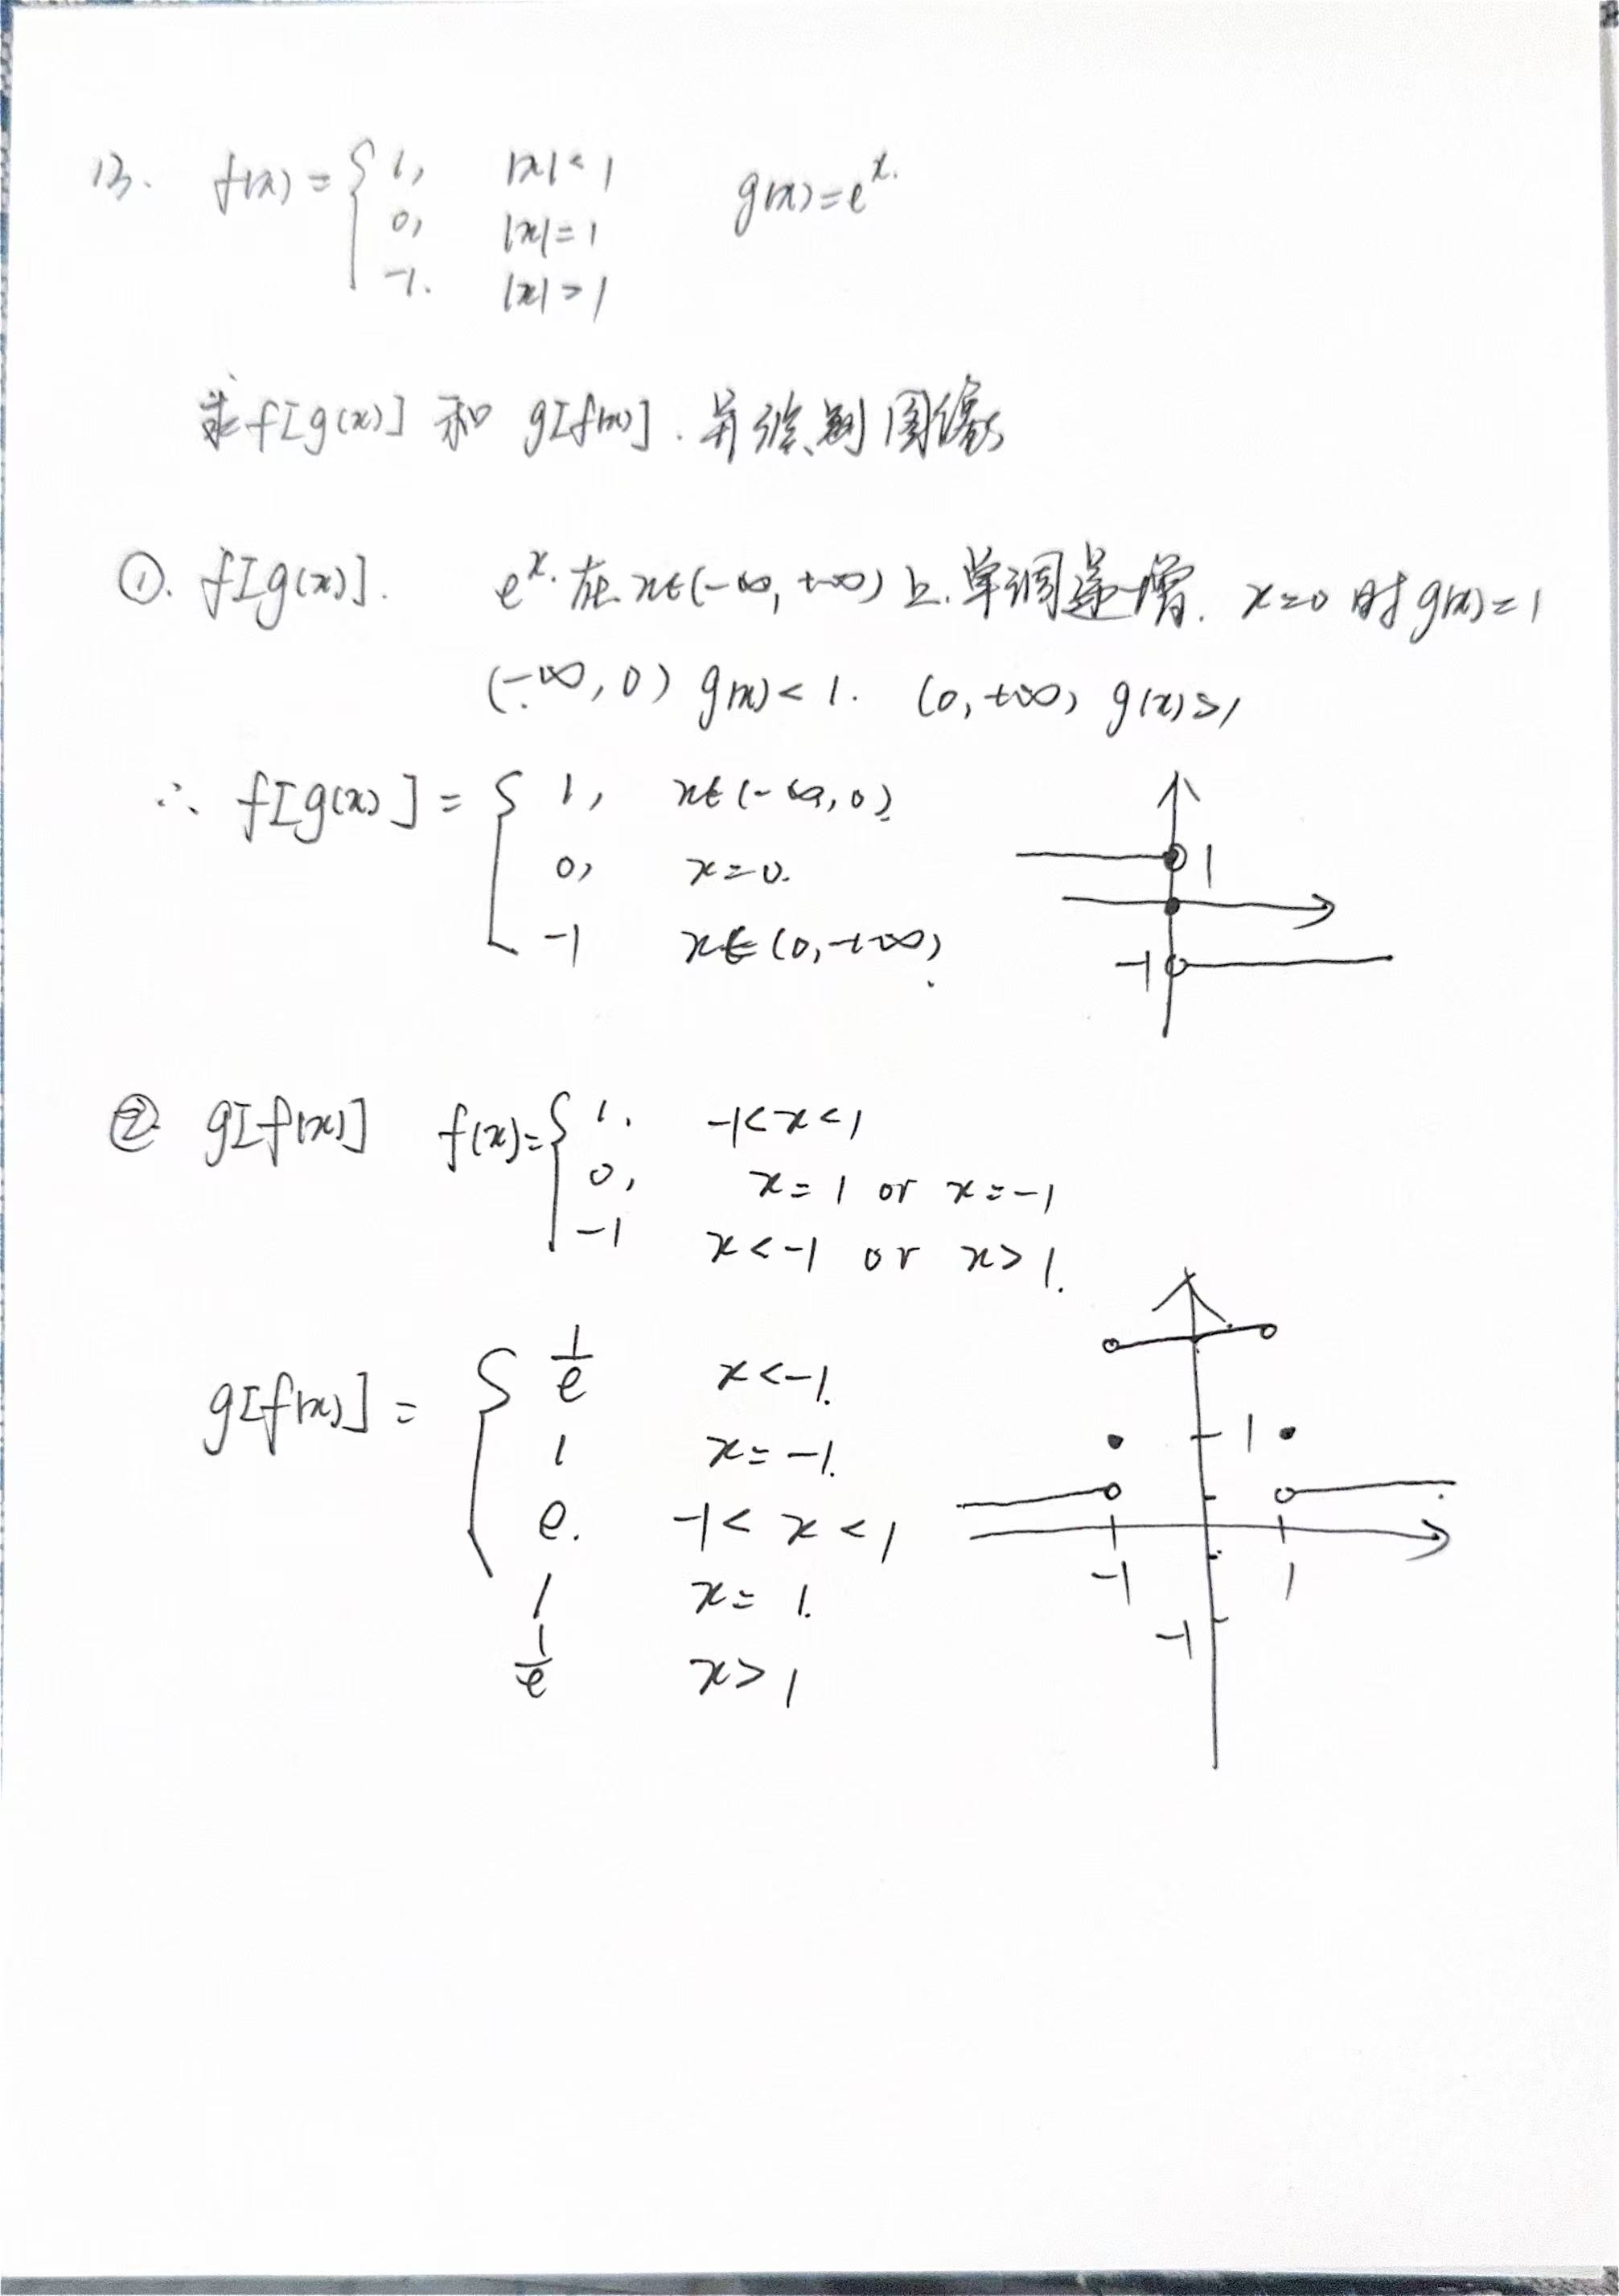 13. f(x) = { 1, |x| < 1 g(x) = e^x.
0, |x| = 1
-1. |x| > 1
求 f[g(x)] 和 g[f(x)]. 并绘制图像
①. f[g(x)]. e^x. 在 x∈(-∞, +∞) 上. 单调递增. x=0 时 g(x) = 1
(-∞, 0) g(x) < 1. (0, +∞) g(x) > 1
∴ f[g(x)] = { 1, x∈(-∞, 0)
0, x=0.
-1 x∈(0, +∞).
1
-1
② g[f(x)] f(x) = { 1. -1< x < 1
0, x = 1 or x = -1
-1 x < -1 or x > 1.
g[f(x)] = { 1/e x < -1.
1 x = -1.
e. -1 < x < 1
1 x = 1.
1/e x > 1
1
-1 1
-1